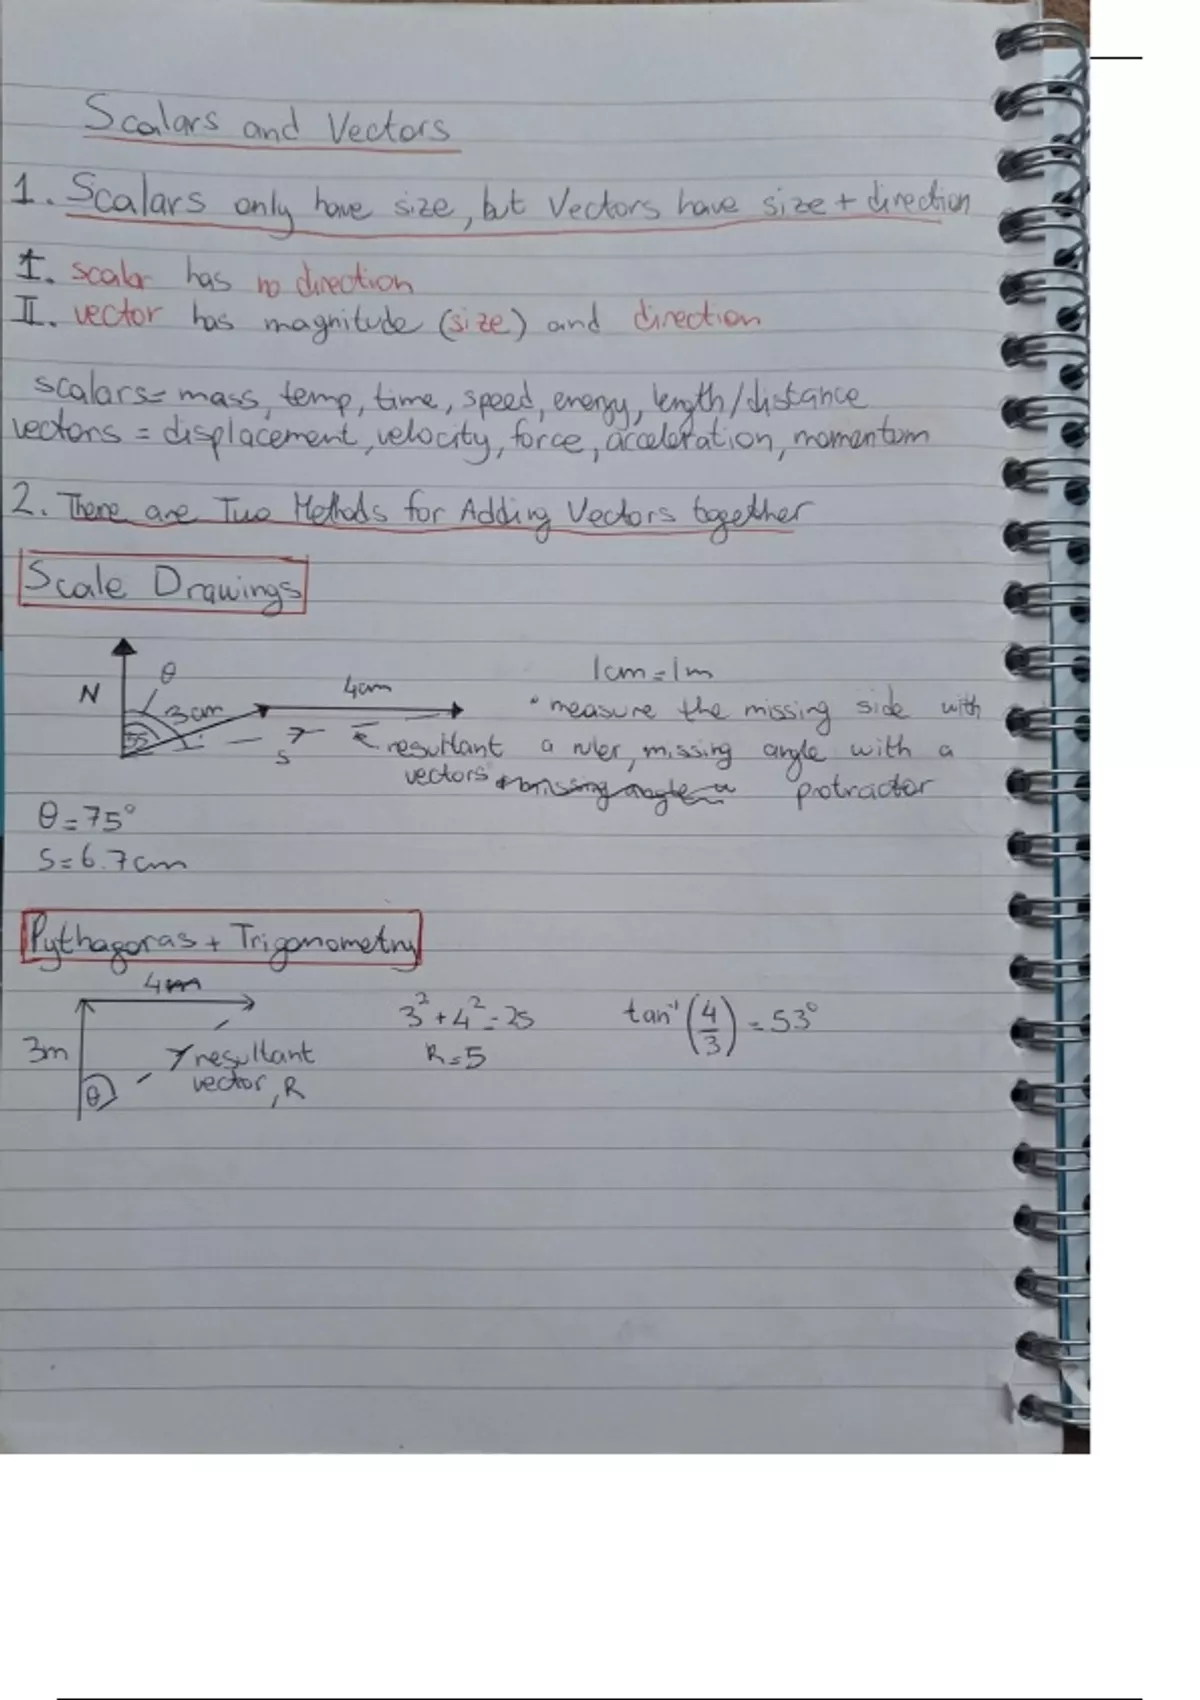 Scalars and Vectors
1. Scalars only have size, but Vectors have size + direction
I. scalar has no direction
II. vector has magnitude (size) and direction
scalars = mass, temp, time, speed, energy, length/distance
vectors = displacement, velocity, force, acceleration, momentum
2. There are Two Methods for Adding Vectors together
Scale Drawings
N
θ
3cm
4cm
s
resultant
vectors
1cm = 1m
• measure the missing side with
a ruler, missing angle with a
protractor
θ = 75°
S = 6.7cm
Pythagoras + Trigonometry
4m
3m
θ
resultant
vector, R
3² + 4² = 25
R = 5
tan⁻¹ (4/3) = 53°